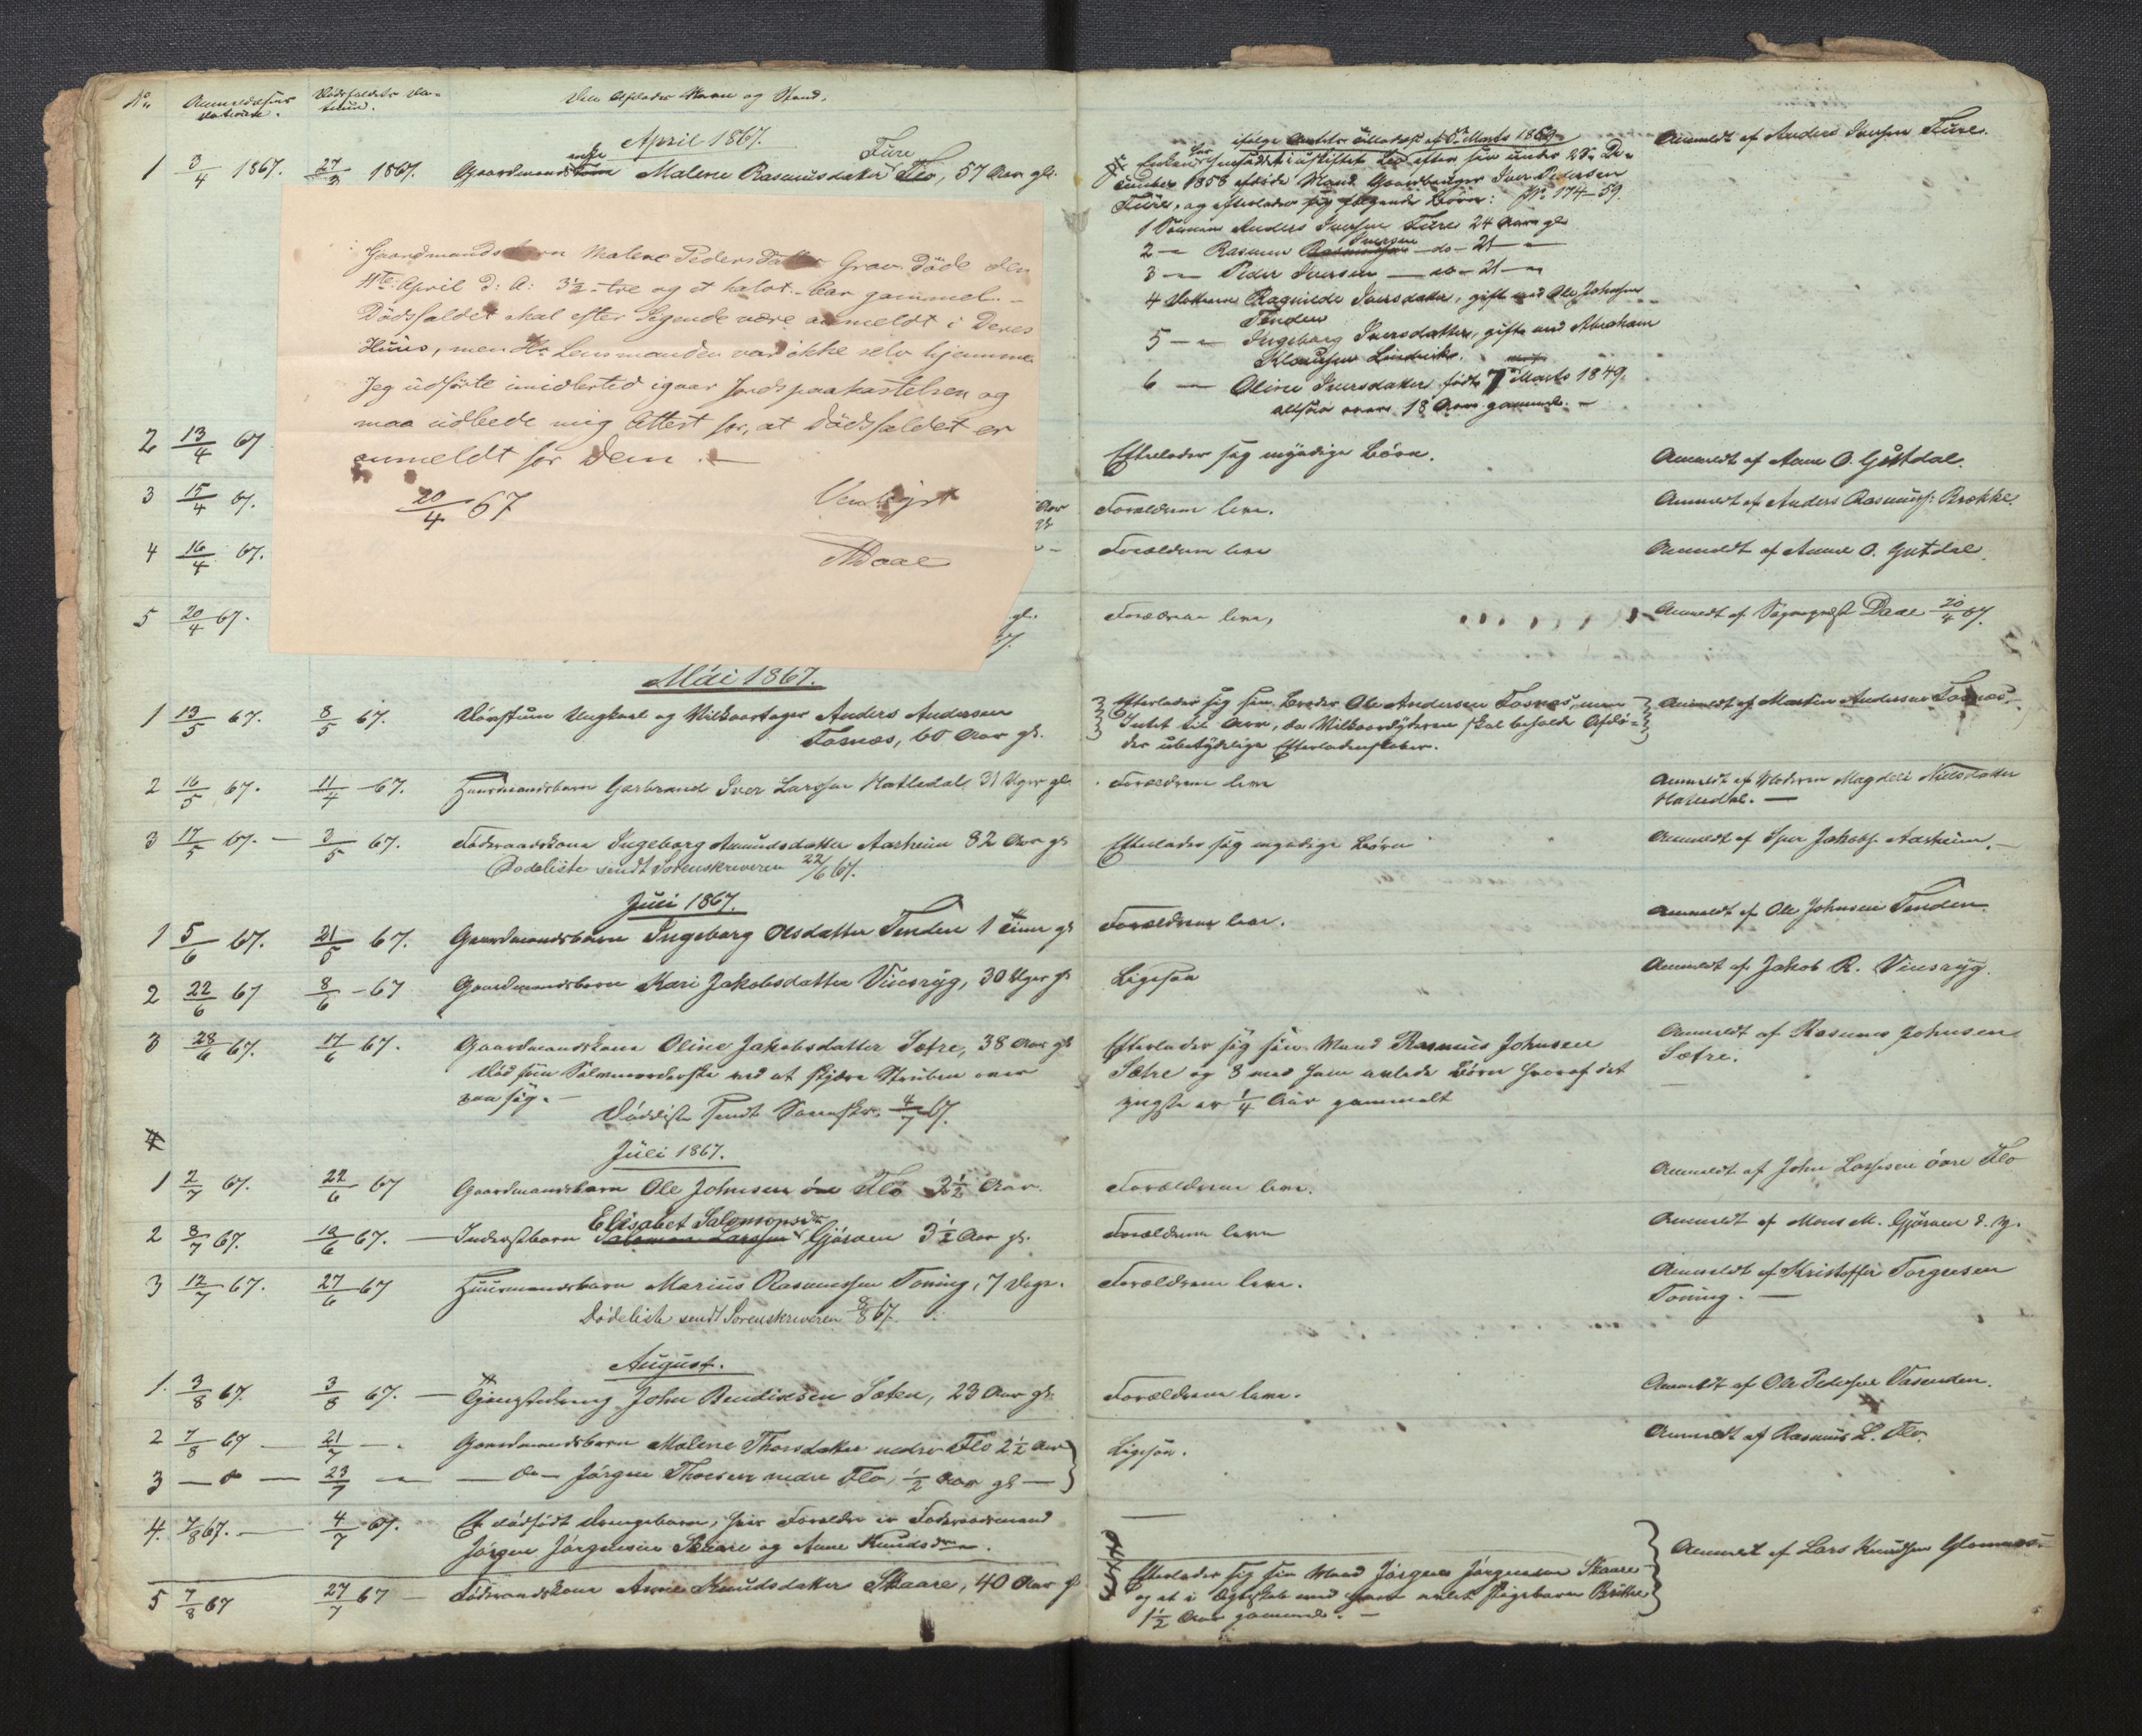 No Anmeldelses Datum. Dødsfaldets Datum. Den Afdødes Navn og Stand.
April 1867.
1 3/4 1867. 27/3 1867. Gaardmandsenke Malene Rasmusdatter Flo Fure, 57 Aar gl.
ifølge Amtets Tilladelse af 5te Marts 1859
Enken har hensiddet i uskiftet Bo efter sin under 28de De-
cember 1858 afdøde Mand Gaardbruger Iver Pedersen
Fure, og efterlader sig følgende Børn: No 174-59.
1 Sønnen Anders Iversen Fure 24 Aar gl
2 — Rasmus Iversen do 21 —
3 — Peder Iversen — do — 21 —
4 Datteren Ragnilde Iversdatter, gift med Ole Johnsen
Tenden
5 — Ingeborg Iversdatter, gift med Abraham
Klausen Lindvik.
6 — Oline Iversdatter født 7 Marts 1849.
altsaa over 18 Aar gammel. —
Anmeldt af Anders Iversen Fure.
Gaardmandsbarn Malene Pedersdatter Grav døde den
11te April d: A: 3½ - tre og et halvt - Aar gammel. -
Dødsfaldet skal efter Sigende være anmeldt i Deres
Huus, men Hr Lensmanden var ikke selv hjemme.
Jeg udførte imidlertid igaar Jordspaakastelsen og
maa udbede mig Attest for, at Dødsfaldet er
anmeldt for Dem. —
20/4 67 Venligst
Daae
2 13/4 67 Efterlader sig myndige Børn. Anmeldt af Anne O. Gutdal.
3 15/4 67. Aar gl Forældrene leve. Anmeldt af Anders Rasmuss: Brække.
4 16/4 67. Forældrene leve Anmeldt af Anne O. Gutdal.
5 20/4 67. gl. Forældrene leve, Anmeldt af Sogneprest Daae 20/4 67.
Mai 1867.
1 13/5 67. 8/5 67. Døvstum Ungkarl og Vilkaartager Anders Andersen
Tosnæs, 60 Aar gl.
Efterlader sig sin Broder Ole Andersen Tosnæs, men
Intet til Arv, da Vilkaarsyderen skal beholde Afdø-
des ubetydelige Efterladenskaber.
Anmeldt af Martin Andersen Tosnæs.
2 16/5 67. 11/4 67. Huusmandsbarn Gerbrand Iver Larssen Hatledal 31 Uger gl. Forældrene leve Anmeldt af Moderen Magdeli Nielsdatter
Hatledal. —
3 17/5 67. — 3/5 67. Føderaadskone Ingeborg Amundsdatter Aarheim 82 Aar gl Efterlader sig myndige Børn Anmeldt af Iver Jakobs. Aarheim. —
Dødeliste sendt Sorenskriveren 22/6 67.
Juni 1867.
1 5/6 67. 21/5 67. Gaardmandsbarn Ingeborg Olsdatter Tenden 1 Time gl Forældrene leve. Anmeldt af Ole Johnsen Tenden.
2 22/6 67 8/6 - 67 Gaardmandsbarn Kari Jakobsdatter Vinsryg, 30 Uger gl Ligesaa Anmeldt af Jakob R. Vinsryg.
3 28/6 67. 17/6 67. Gaardmandskone Oline Jakobsdatter Sætre, 38 Aar gl
Død som Selvmorderske ved at skjære Struben over
paa sig. —
Efterlader sig sin Mand Rasmus Johnsen
Sætre og 8 med ham avlede Børn hvoraf det
yngste er ¼ Aar gammelt
Anmeldt af Rasmus Johnsen
Sætre.
Dødeliste sendt Sorenskr. 4/7 67.
4
Juli 1867.
1 2/7 67. 22/6 67 Gaardmandsbarn Ole Johnsen øvre Flo 2½ Aar. Forældrene leve. Anmeldt af John Larssen øvre Flo
2 8/7 67. 12/6 67. — Inderstbarn Salomon Larssen Elisabet Salomonsdr Gjørven 3½ Aar gl. Forældrene leve Anmeldt af Mons M. Gjørven d. y.
3 12/7 67. 27/6 67 Huusmandsbarn Marius Rasmussen Toning, 7 Dage. Forældrene leve. Anmeldt af Kristoffer Torgersen
Toning. —
Dødeliste sendt Sorenskriveren 8/8 67.
August.
1. 3/8 67. 3/8 67. — Gjengsdreng John Bendixsen Sæten, 23 Aar gl. Forældrene leve. Anmeldt af Ole Pedersen Vasenden.
2 7/8 67 — 21/7 — Gaardmandsbarn Malene Thorsdatter nedre Flo 2½ Aar Ligesaa. Anmeldt af Rasmus L. Flo.
3 — " — 23/7 — — do — Jørgen Thorsen nedre Flo, ½ Aar gl —
4. 7/8 67. — 4/7 67. Et dødfødt Drengebarn, hvis Forældre er Føderaadsmand
Jørgen Jørgensen Skaare og Anne Knudsdr. —
5 7/8 67 27/7 67 — Føderaadskone Anne Knudsdatter Skaare, 40 Aar gl
Efterlader sig sin Mand Jørgen Jørgensen Skaare
og et i Ægteskab med ham avlet Pigebarn Brithe
1½ Aar gammel. —
Anmeldt af Lars Knudsen Glomnæs